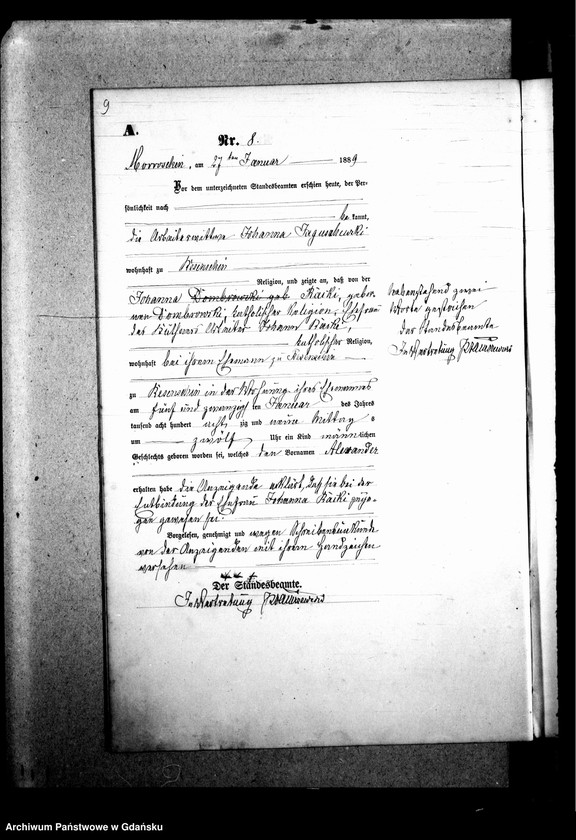 9
A.
Nr. 8.
Morroschin, am 27 ten Januar 1889
Vor dem unterzeichneten Standesbeamten erschien heute, der Per-
sönlichkeit nach
be kannt,
die Arbeiterwittwe Johanna
wohnhaft zu Resenschin
Religion, und zeigte an, daß von der
Johanna Dombrowski geb. Raiki, gebor
nen Dombrowski, katholischer Religion, Ehefrau
des Arbeiter Johann Raiki,
katholischer Religion,
wohnhaft bei ihrem Ehemann zu Resenschin
zu Resenschin in der Wohnung ihres Ehemannes
am fünf und zwanzigsten Januar des Jahres
tausend acht hundert acht zig und neun Mittags
um zwölf Uhr ein Kind männlichen
Geschlechts geboren worden sei, welches den Vornamen Alexander
erhalten habe die Anzeigende erklärt, daß sie bei der
Entbindung der Ehefrau Johanna Raiki zuge-
gen gewesen sei.
Vorgelesen, genehmigt und wegen Schreibenunkunde
von der Anzeigenden mit ihrem Handzeichen
versehen
+++
Der Standesbeamte.
In Vertretung
Nebenstehend zwei
Worte gestrichen
Der Standesbeamte
In Vertretung
Archiwum Państwowe w Gdańsku